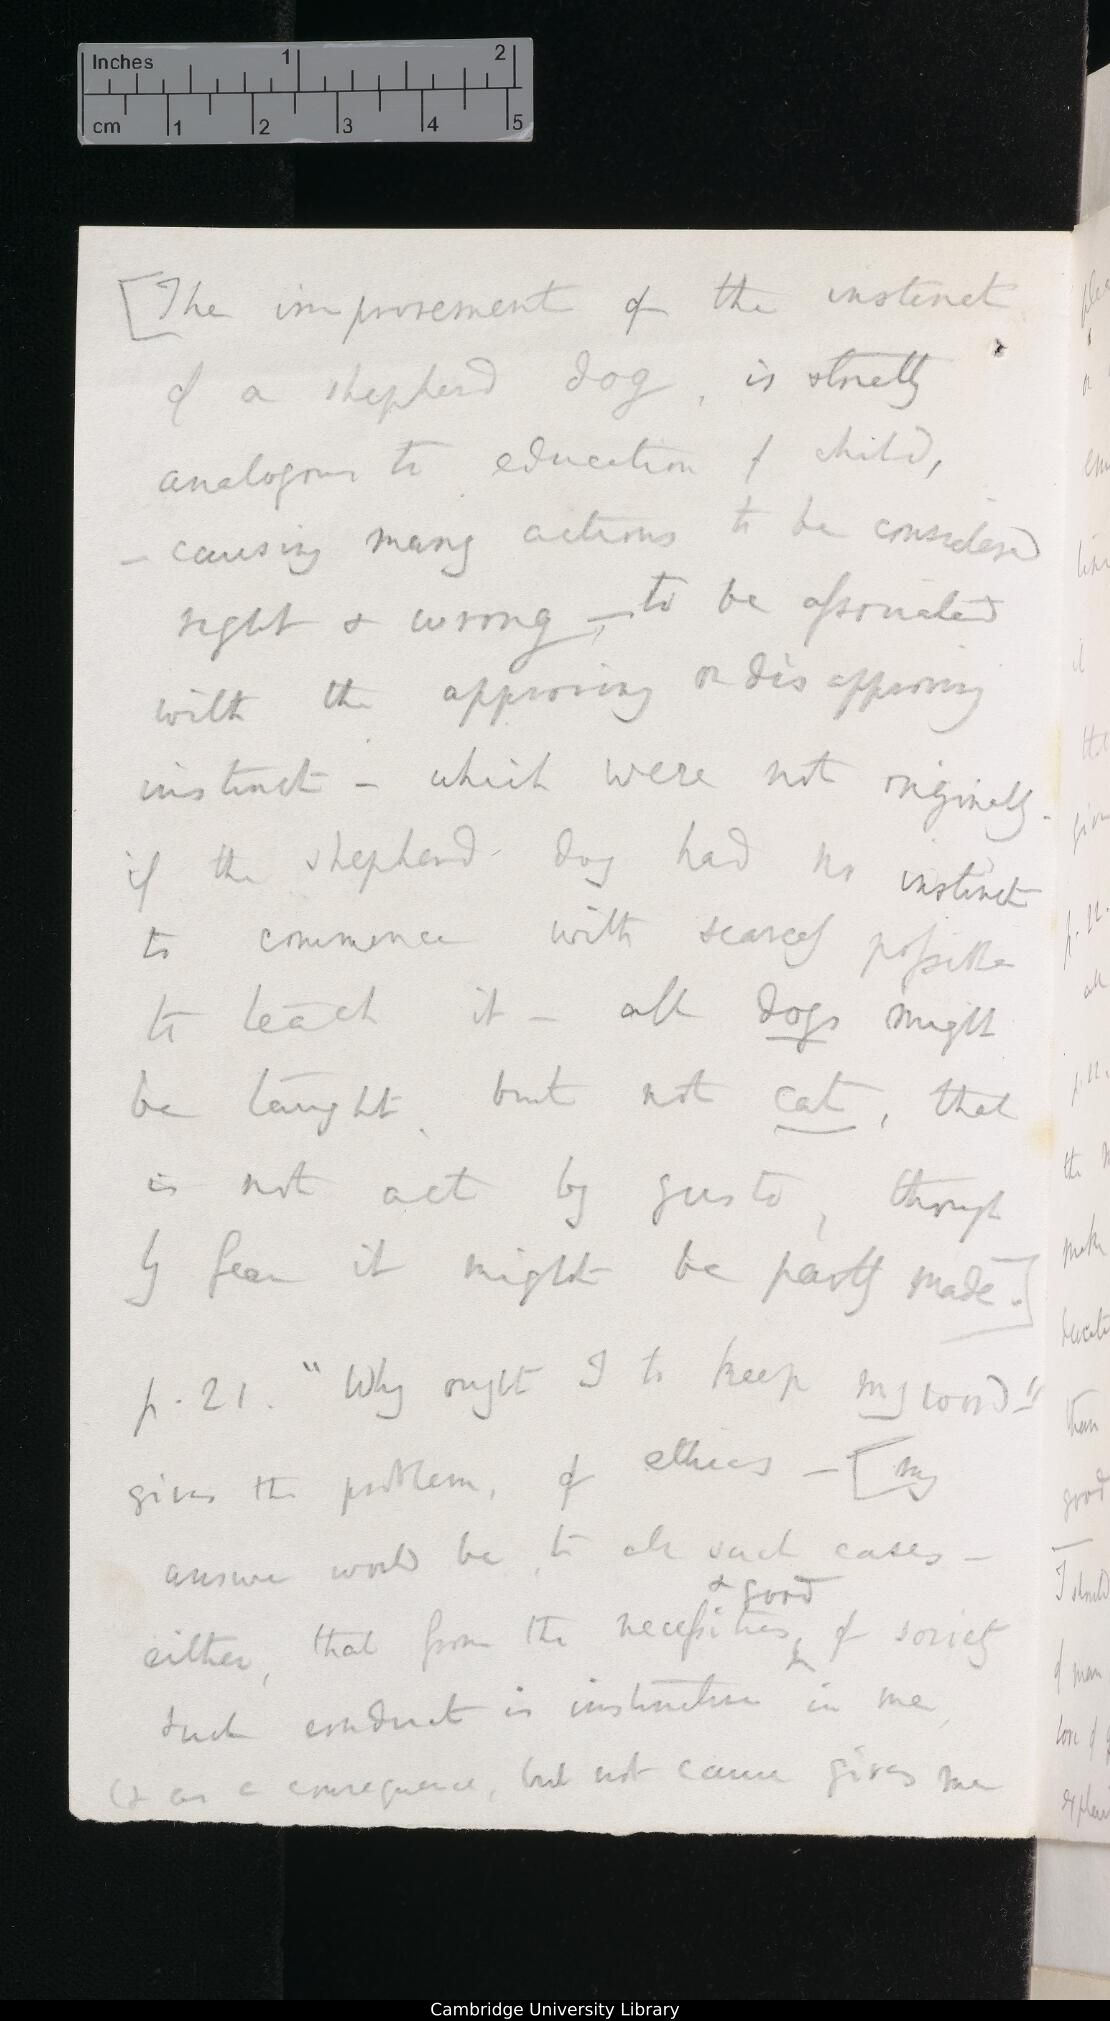 Inches 1 2
cm 1 2 3 4 5
[The improvement of the instinct
of a shepherd dog, is strictly
analogous to education of child,
– causing many actions to be considered
right & wrong – to be associated
with the approving or disapproving
instinct – which were not originally.
if the shepherd dog had no instinct
to commence with scarcely possible
to teach it – all dogs might
be taught, but not cat, that
is not act by gusto, though
by fear it might be partly made.]
p. 21. "Why ought I to keep my word"
gives the problem, of ethics – [my
answer would be, to all such cases –
either, that from the necessities & good of society
such conduct is instinctive in me,
(& as a consequence, but not cause gives me
Cambridge University Library